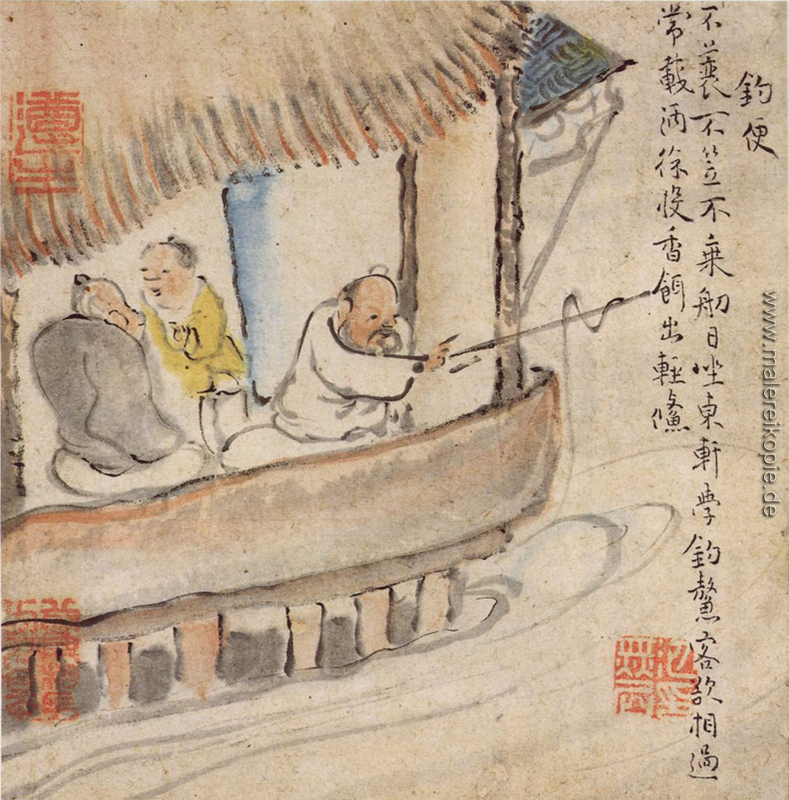 釣便
不蓑不笠不乗舠日坐東軒学釣鰲客欲相過
常載酒徐投香餌出輕鰷
www.malereikopie.de